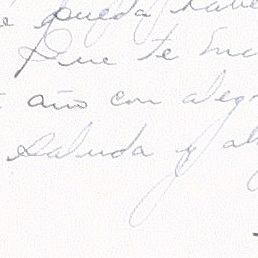 e pueda
Que te
año con aleg
Saluda y ab